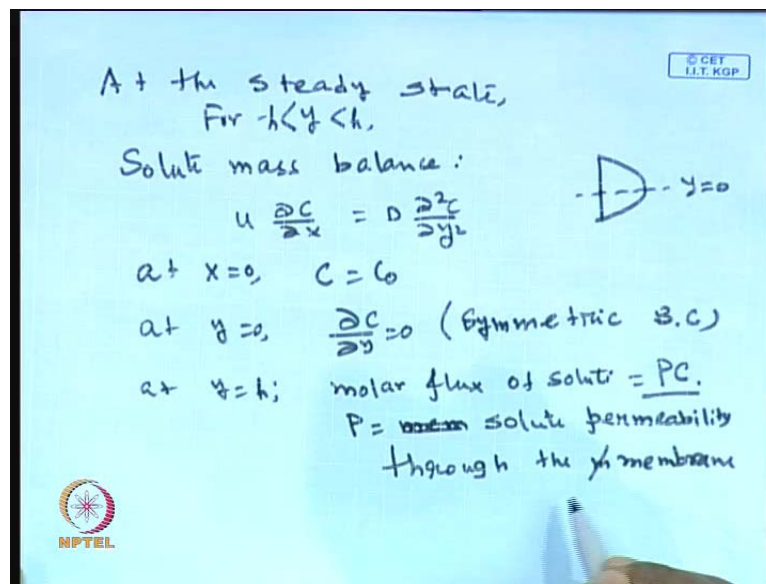 © CET
I.I.T. KGP
At the steady state,
For -h<y<h,
Solute mass balance:
u ∂C/∂x = D ∂²C/∂y²
y=0
at x=0, C = C0
at y=0, ∂C/∂y =0 (Symmetric B.C)
at y=h; molar flux of solute = PC.
P = solute permeability
through the membrane
NPTEL